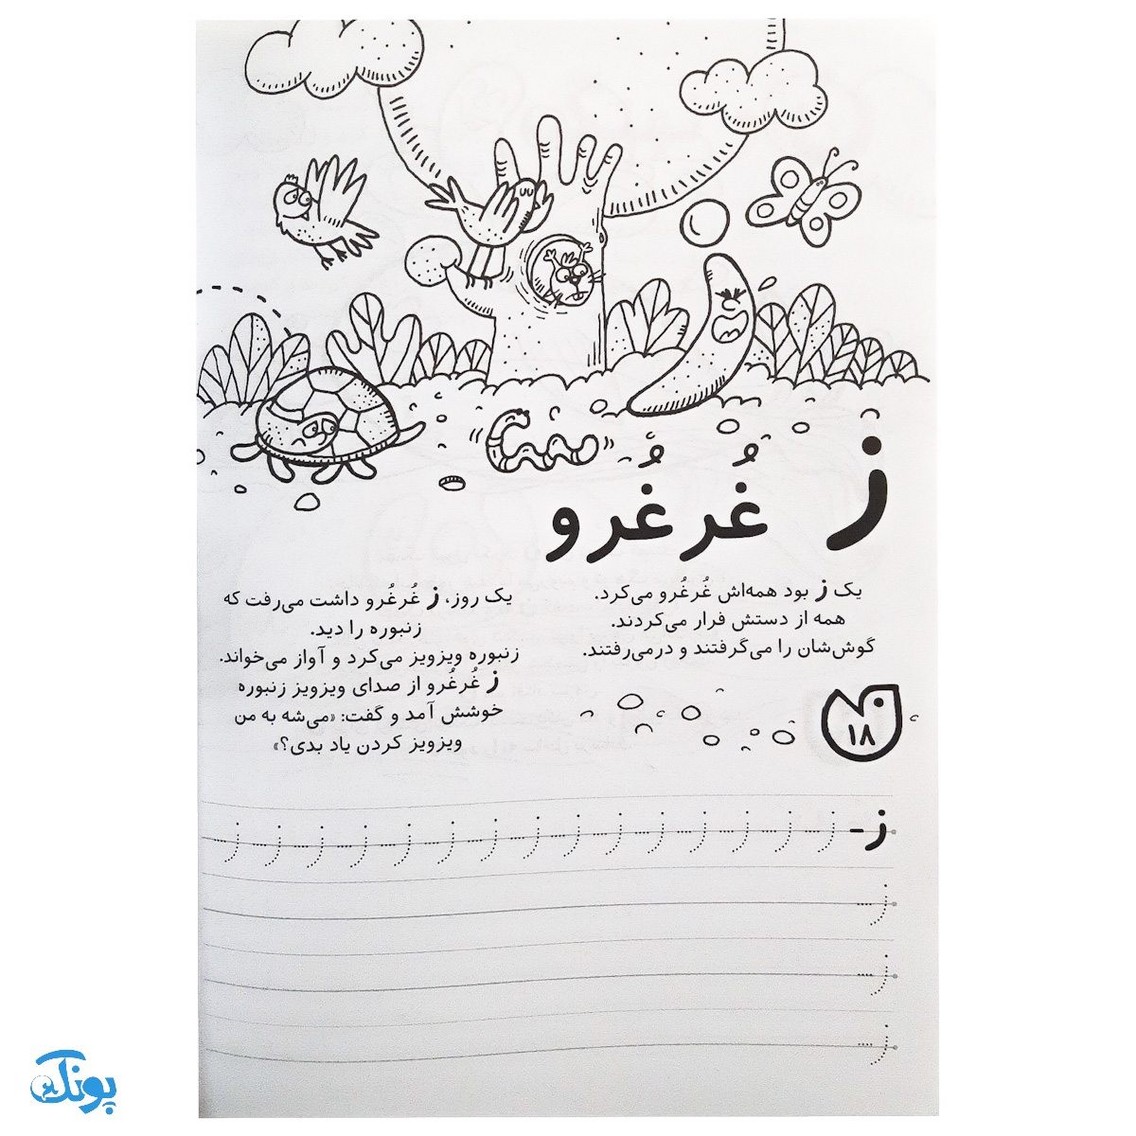 ز غُرغُرو
یک ز بود همه‌اش غُرغُرو می‌کرد.
همه از دستش فرار می‌کردند.
گوش‌شان را می‌گرفتند و درمی‌رفتند.
یک روز، ز غُرغُرو داشت می‌رفت که
زنبوره را دید.
زنبوره ویزویز می‌کرد و آواز می‌خواند.
ز غُرغُرو از صدای ویزویز زنبوره
خوشش آمد و گفت: «می‌شه به من
ویزویز کردن یاد بدی؟»
۱۸
ز- ز ز ز ز ز ز ز ز ز ز ز ز ز ز ز
ز
ز
ز
پونک